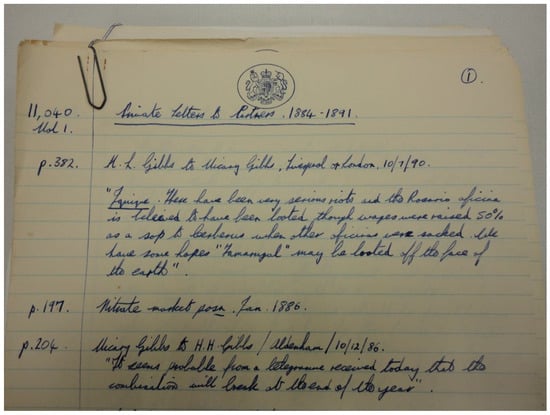 ①.
11,040 Private Letters to Partners. 1884-1891.
Vol 1.
p.382. H. L. Gibbs to Vicary Gibbs, Liverpool & London, 10/7/90.
"Iquique. There have been very serious riots and the Rosario oficina
is believed to have been looted, though wages were raised 50%
as a sop to Cerberus when other oficinas were sacked. We
have some hopes "Tamarugal" may be looted off the face of
the earth".
p.197. Nitrate market posn. Jan. 1886.
p.204. Vicary Gibbs to H.H. Gibbs / Aldenham / 10/12/86.
"It seems probable from a telegramme received today that the
combination will break at the end of the year".